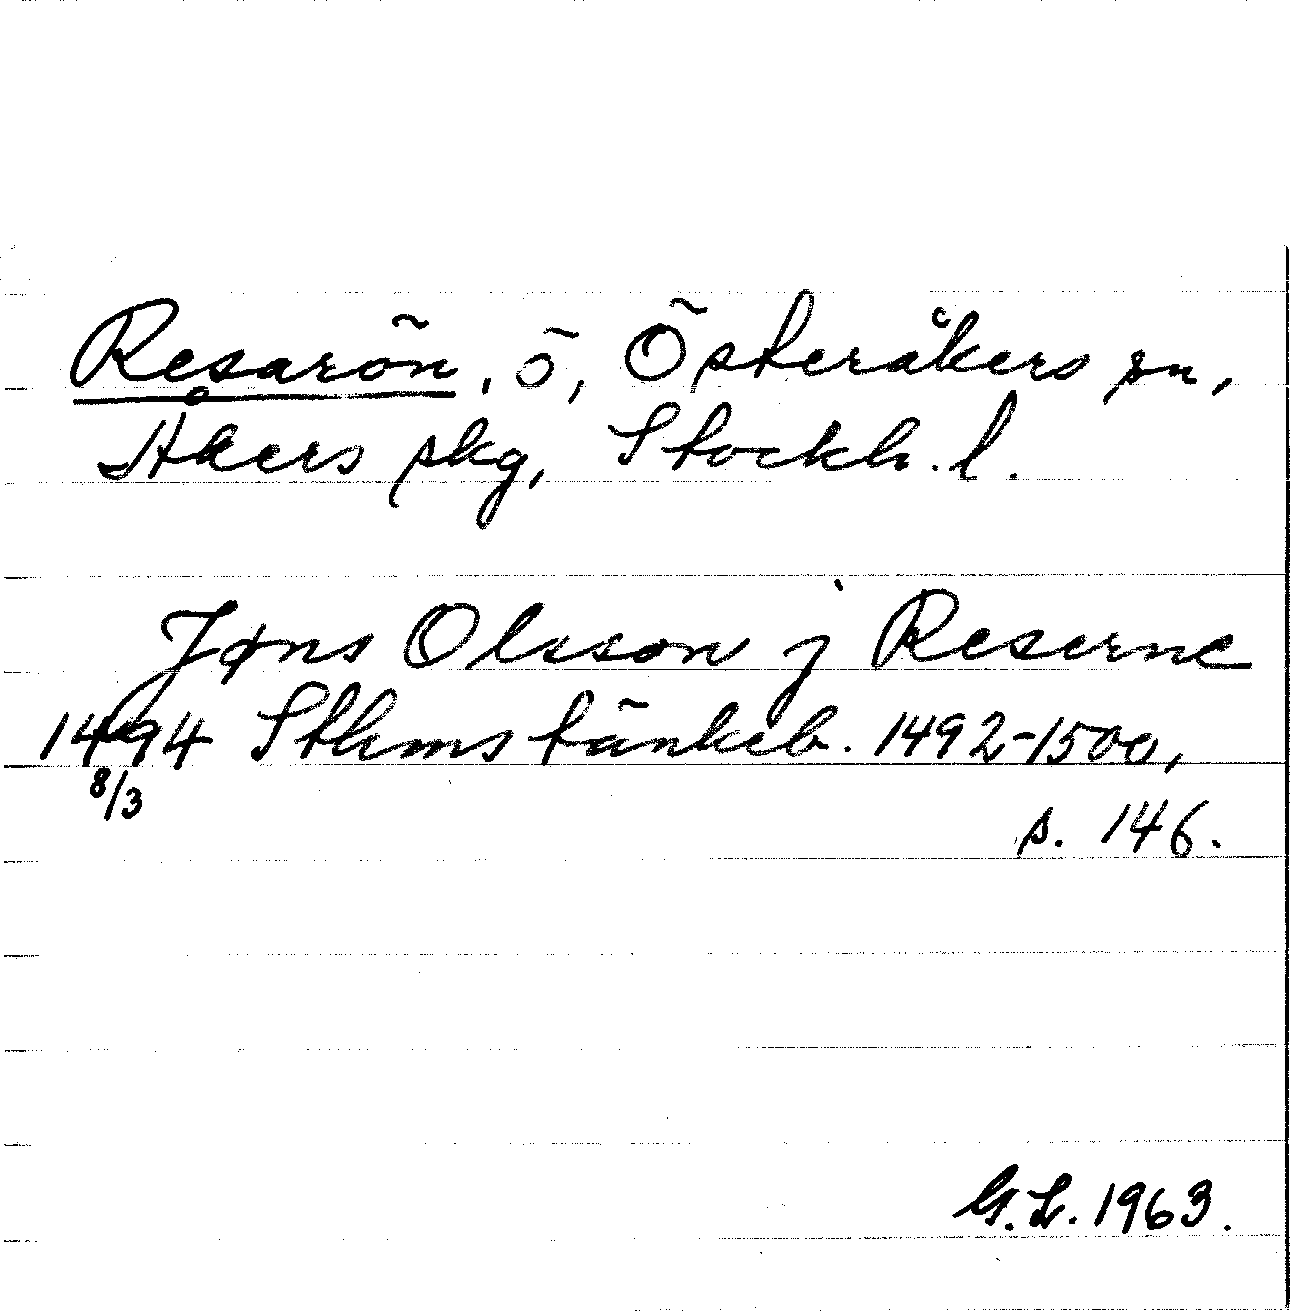 Resarön, ö, Österåkers sn,
Åkers skg, Stockh. l.
Jøns Olsson j Reserne
1494 Sthms tänkeb. 1492-1500,
8/3
s. 146.
G.L. 1963.